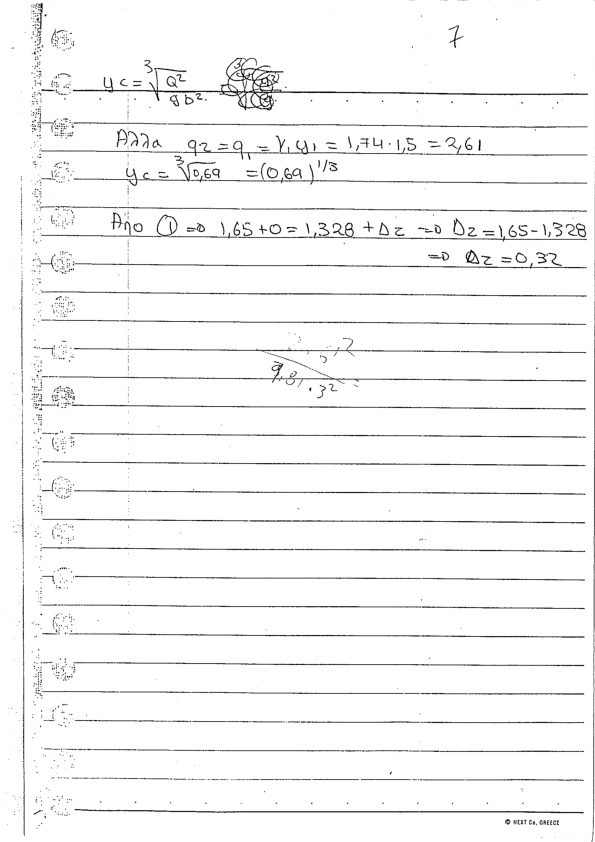 7
yc = ∛(Q²/gb²)
Αλλα q2 = q1 = V1 y1 = 1,74 · 1,5 = 2,61
yc = ∛0,69 = (0,69)^1/3
Απο ① => 1,65 + 0 = 1,328 + Δz => Δz = 1,65 - 1,328
=> Δz = 0,32
9,81 · 3²
© NEXT Co, GREECE